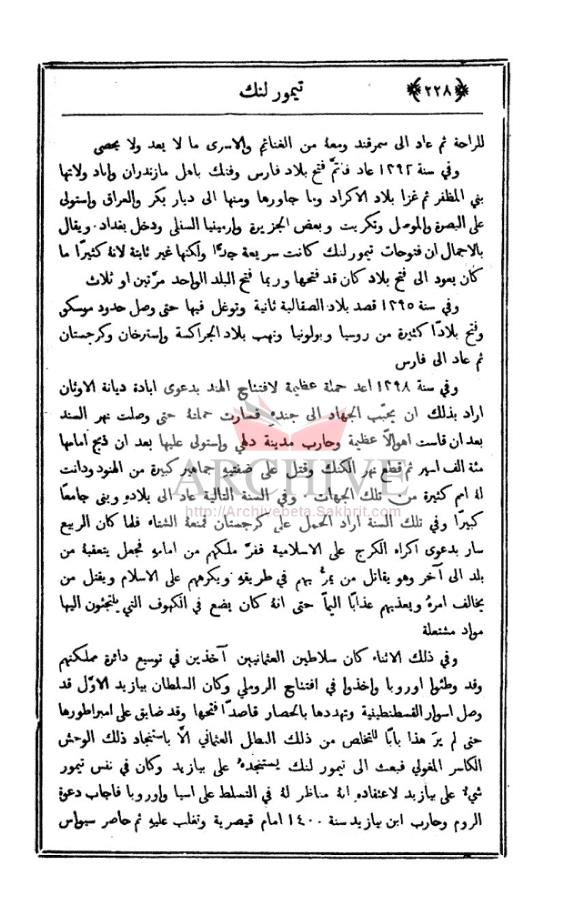 ﴿٢٢٨﴾ تيمور لنك
للراحة ثم عاد الى سمرقند ومعهُ من الغنائم والاسرى ما لا يعد ولا يحصى
وفي سنة ١٣٩٢ عاد فاتمَّ فتح بلاد فارس وفتك باهل مازندران واباد ولاتها
بني المظفر ثم غزا بلاد الاكراد وما جاورها ومنها الى ديار بكر والعراق واستولى
على البصرة والموصل وتكريت وبعض الجزيرة وارمينيا السفلى ودخل بغداد. ويقال
بالاجمال ان فتوحات تيمور لنك كانت سريعة جدًّا ولكنها غير ثابتة لانهُ كثيرًا ما
كان يعود الى فتح بلاد كان قد فتحها وربما فتح البلد الواحد مرَّتين او ثلاث
وفي سنة ١٣٩٥ قصد بلاد الصقالبة ثانية وتوغل فيها حتى وصل حدود موسكو
وفتح بلادًا كثيرة من روسيا وبولونيا ونهب بلاد الجراكسة واسترخان وكرجستان
ثم عاد الى فارس
وفي سنة ١٣٩٨ اعد حملة عظيمة لافتتاح الهند بدعوى ابادة ديانة الاوثان
اراد بذلك ان يحبّب الجهاد الى جندهِ فسارت حملتهُ حتى وصلت نهر السند
بعد ان قاست اهوالًا عظيمة وحارب مدينة دهلي واستولى عليها بعد ان ذبح امامها
مئة الف اسير ثم قطع نهر الكنك وقتل على ضفتيهِ جماهير كبيرة من الهنود ودانت
لهُ امم كثيرة من تلك الجهات. وفي السنة التالية عاد الى بلادهِ وبنى جامعًا
كبيرًا وفي تلك السنة اراد الحمل على كرجستان فمنعهُ الشتاء فلما كان الربيع
سار بدعوى اكراه الكرج على الاسلامية ففرَّ ملكهم من امامهِ فجعل يتعقبهُ من
بلد الى آخر وهو يقاتل من يمرُّ بهم في طريقهِ ويكرههم على الاسلام ويقتل من
يخالف امرهُ ويعذبهم عذابًا اليمًا حتى انهُ كان يضع في الكهوف التي يلتجئون اليها
مواد مشتعلة
وفي ذلك الاثناء كان سلاطين العثمانيين آخذين في توسيع دائرة مملكتهم
وقد وطئوا اوروبا واخذوا في افتتاح الروملي وكان السلطان بيازيد الاوَّل قد
وصل اسوار القسطنطينية وتهددها بالحصار قاصدًا فتحها وقد ضايق على امبراطورها
حتى لم يرَ هذا بابًا للتخلص من ذلك البطل العثماني الَّا باستنجاد ذلك الوحش
الكاسر المغولي فبعث الى تيمور لنك يستنجدهُ على بيازيد وكان في نفس تيمور
شيءٌ على بيازيد لاعتقادهِ انهُ مناظر لهُ في التسلط على اسيا واوروبا فاجاب دعوة
الروم وحارب ابن بيازيد سنة ١٤٠٠ امام قيصرية وتغلب عليهِ ثم حاصر سيواس
ARCHIVE
http://Archivebeta.Sakhrit.com